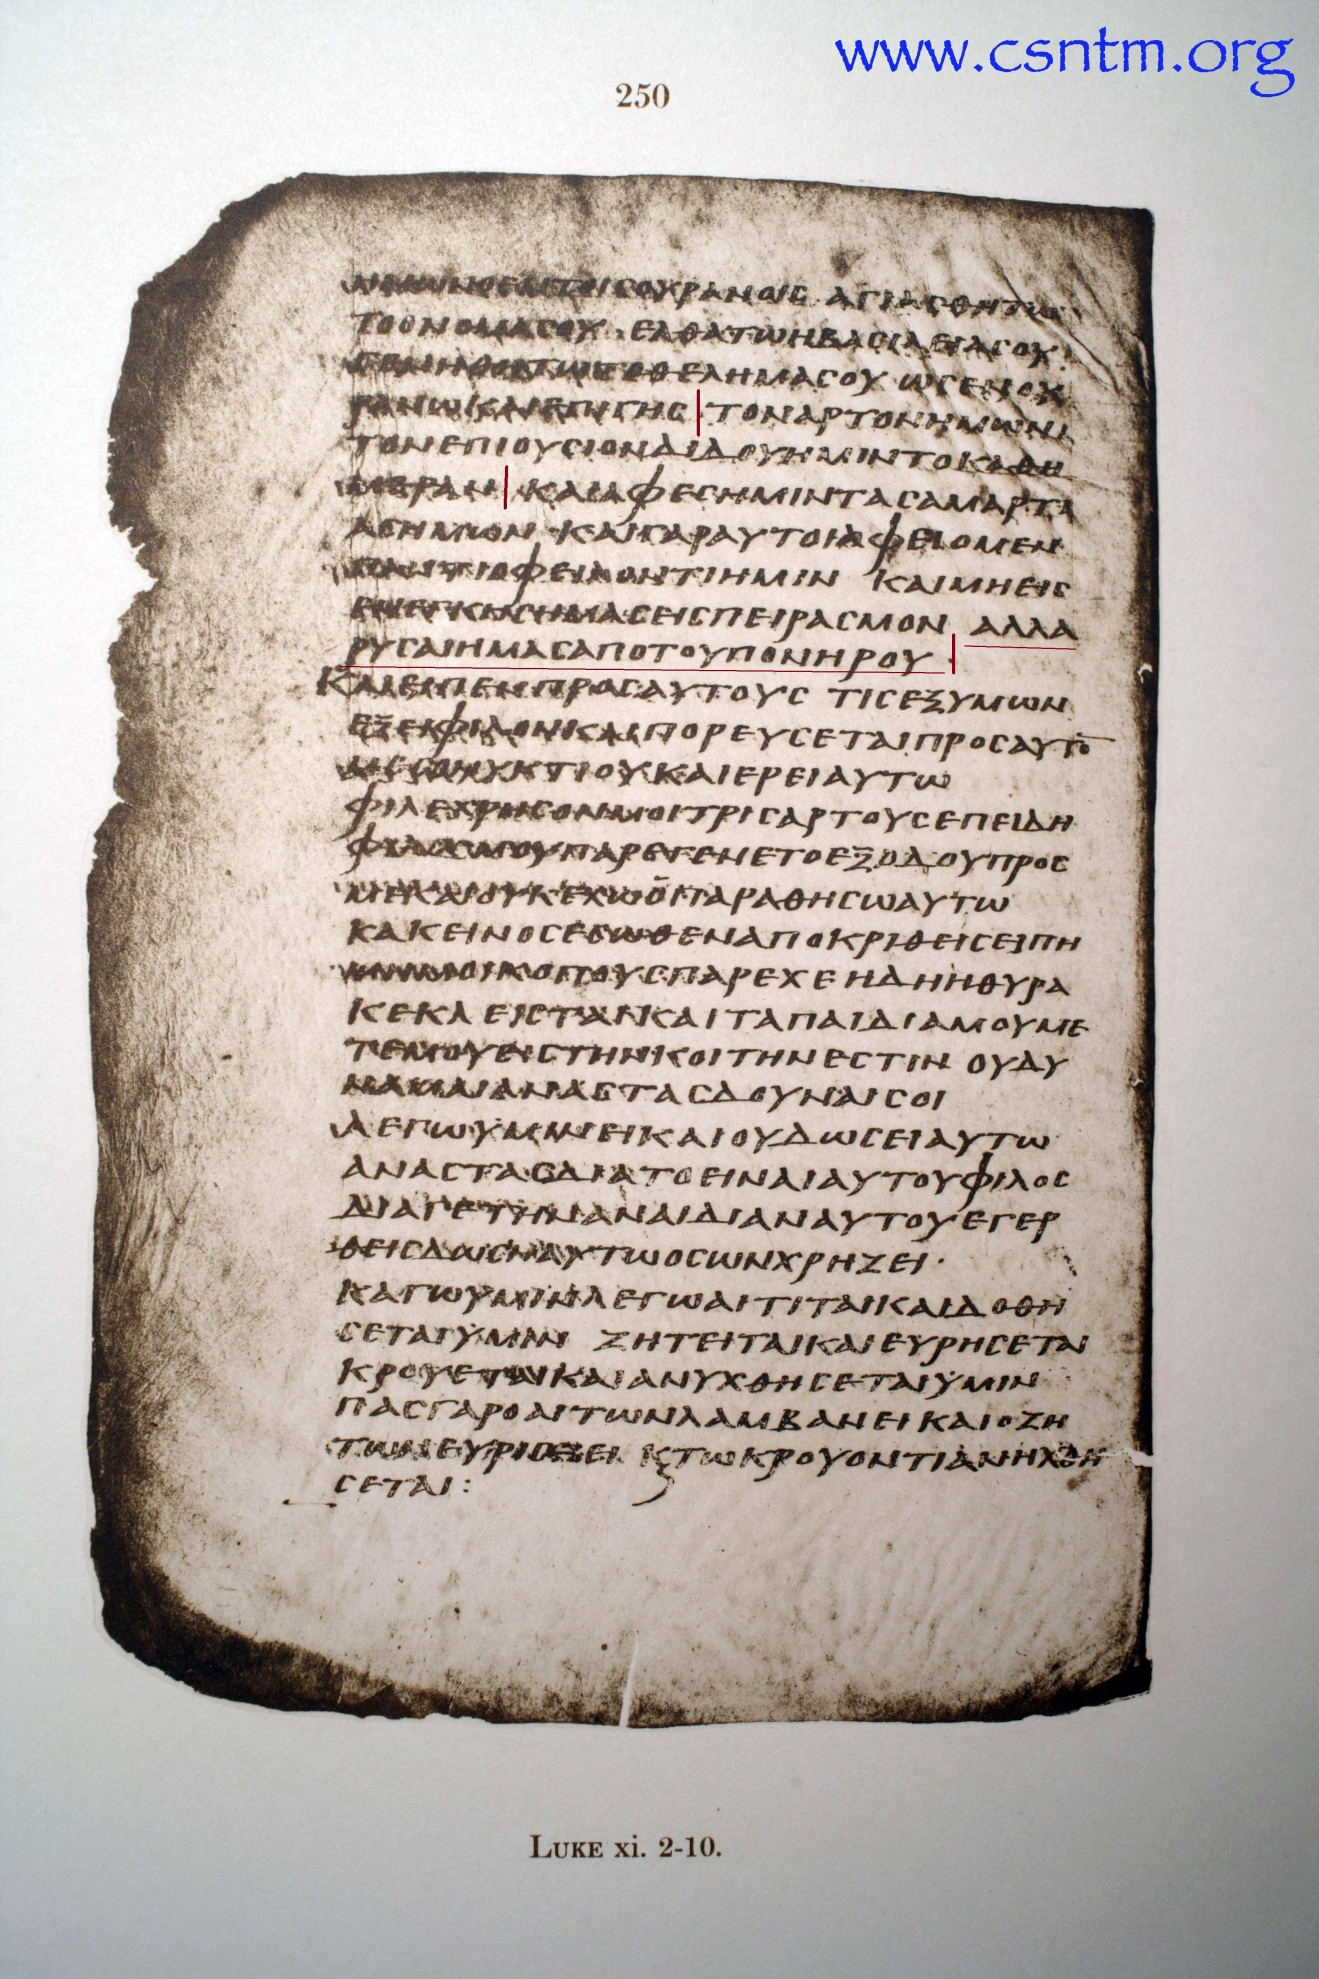 www.csntm.org
250
ΗΜΩΝΟΕΝΤΟΙСΟΥΡΑΝΟΙС ΑΓΙΑСΘΗΤΩ
ΤΟΟΝΟΜΑСΟΥ ΕΛΘΑΤΩΗΒΑСΙΛΕΙΑСΟΥ
ΓΕΝΗΘΗΤΩΤΟΘΕΛΗΜΑСΟΥ ΩСΕΝΟΥ
ΡΑΝΩΚΑΙΕΠΙΓΗС ΤΟΝΑΡΤΟΝΗΜΩΝ
ΤΟΝΕΠΙΟΥСΙΟΝΔΙΔΟΥΗΜΙΝΤΟΚΑΘΗ
ΜΕΡΑΝ ΚΑΙΑΦΕСΗΜΙΝΤΑСΑΜΑΡΤΙ
ΑСΗΜΩΝ ΚΑΙΓΑΡΑΥΤΟΙΑΦΕΙΟΜΕΝ
ΠΑΝΤΙΟΦΕΙΛΟΝΤΙΗΜΙΝ ΚΑΙΜΗΕΙС
ΕΝΕΓΚΗСΗΜΑСΕΙСΠΕΙΡΑСΜΟΝ ΑΛΛΑ
ΡΥСΑΙΗΜΑСΑΠΟΤΟΥΠΟΝΗΡΟΥ
ΚΑΙΕΙΠΕΝΠΡΟСΑΥΤΟΥС ΤΙСΕΞΥΜΩΝ
ΕΞΕΙΦΙΛΟΝΚΑΙΠΟΡΕΥСΕΤΑΙΠΡΟСΑΥΤΟ̅
ΜΕСΟΝΥΚΤΙΟΥΚΑΙΕΡΕΙΑΥΤΩ
ΦΙΛΕΧΡΗСΟΝΜΟΙΤΡΙСΑΡΤΟΥСΕΠΕΙΔΗ
ΦΙΛΟСΜΟΥΠΑΡΕΓΕΝΕΤΟΕΞΟΔΟΥΠΡΟС
ΜΕΚΑΙΟΥΚΕΧΩΟΠΑΡΑΘΗСΩΑΥΤΩ
ΚΑΚΕΙΝΟСΕСΩΘΕΝΑΠΟΚΡΙΘΕΙСΕΙΠΗ
ΜΗΜΟΙΚΟΠΟΥСΠΑΡΕΧΕ ΗΔΗΗΘΥΡΑ
ΚΕΚΛΕΙСΤΑΙΚΑΙΤΑΠΑΙΔΙΑΜΟΥΜΕ
ΤΕΜΟΥΕΙСΤΗΝΚΟΙΤΗΝΕСΤΙΝ ΟΥΔΥ
ΝΑΜΑΙΑΝΑСΤΑСΔΟΥΝΑΙСΟΙ
ΛΕΓΩΥΜΙΝΕΙΚΑΙΟΥΔΩСΕΙΑΥΤΩ
ΑΝΑСΤΑСΔΙΑΤΟΕΙΝΑΙΑΥΤΟΥΦΙΛΟС
ΔΙΑΓΕΤΗΝΑΝΑΙΔΙΑΝΑΥΤΟΥΕΓΕΡ
ΘΕΙСΔΩСΕΙΑΥΤΩΟСΩΝΧΡΗΖΕΙ·
ΚΑΓΩΥΜΙΝΛΕΓΩΑΙΤΙΤΑΙΚΑΙΔΟΘΗ
СΕΤΑΙΥΜΙΝ ΖΗΤΕΙΤΑΙΚΑΙΕΥΡΗСΕΤΑΙ
ΚΡΟΥΕΤΑΙΚΑΙΑΝΥΧΘΗСΕΤΑΙΥΜΙΝ
ΠΑСΓΑΡΟΑΙΤΩΝΛΑΜΒΑΝΕΙΚΑΙΟΖΗ
ΤΩΝΕΥΡΙСΚΕΙ ΚΤΩΚΡΟΥΟΝΤΙΑΝΗΧΘΗ
СΕΤΑΙ:
LUKE xi. 2-10.